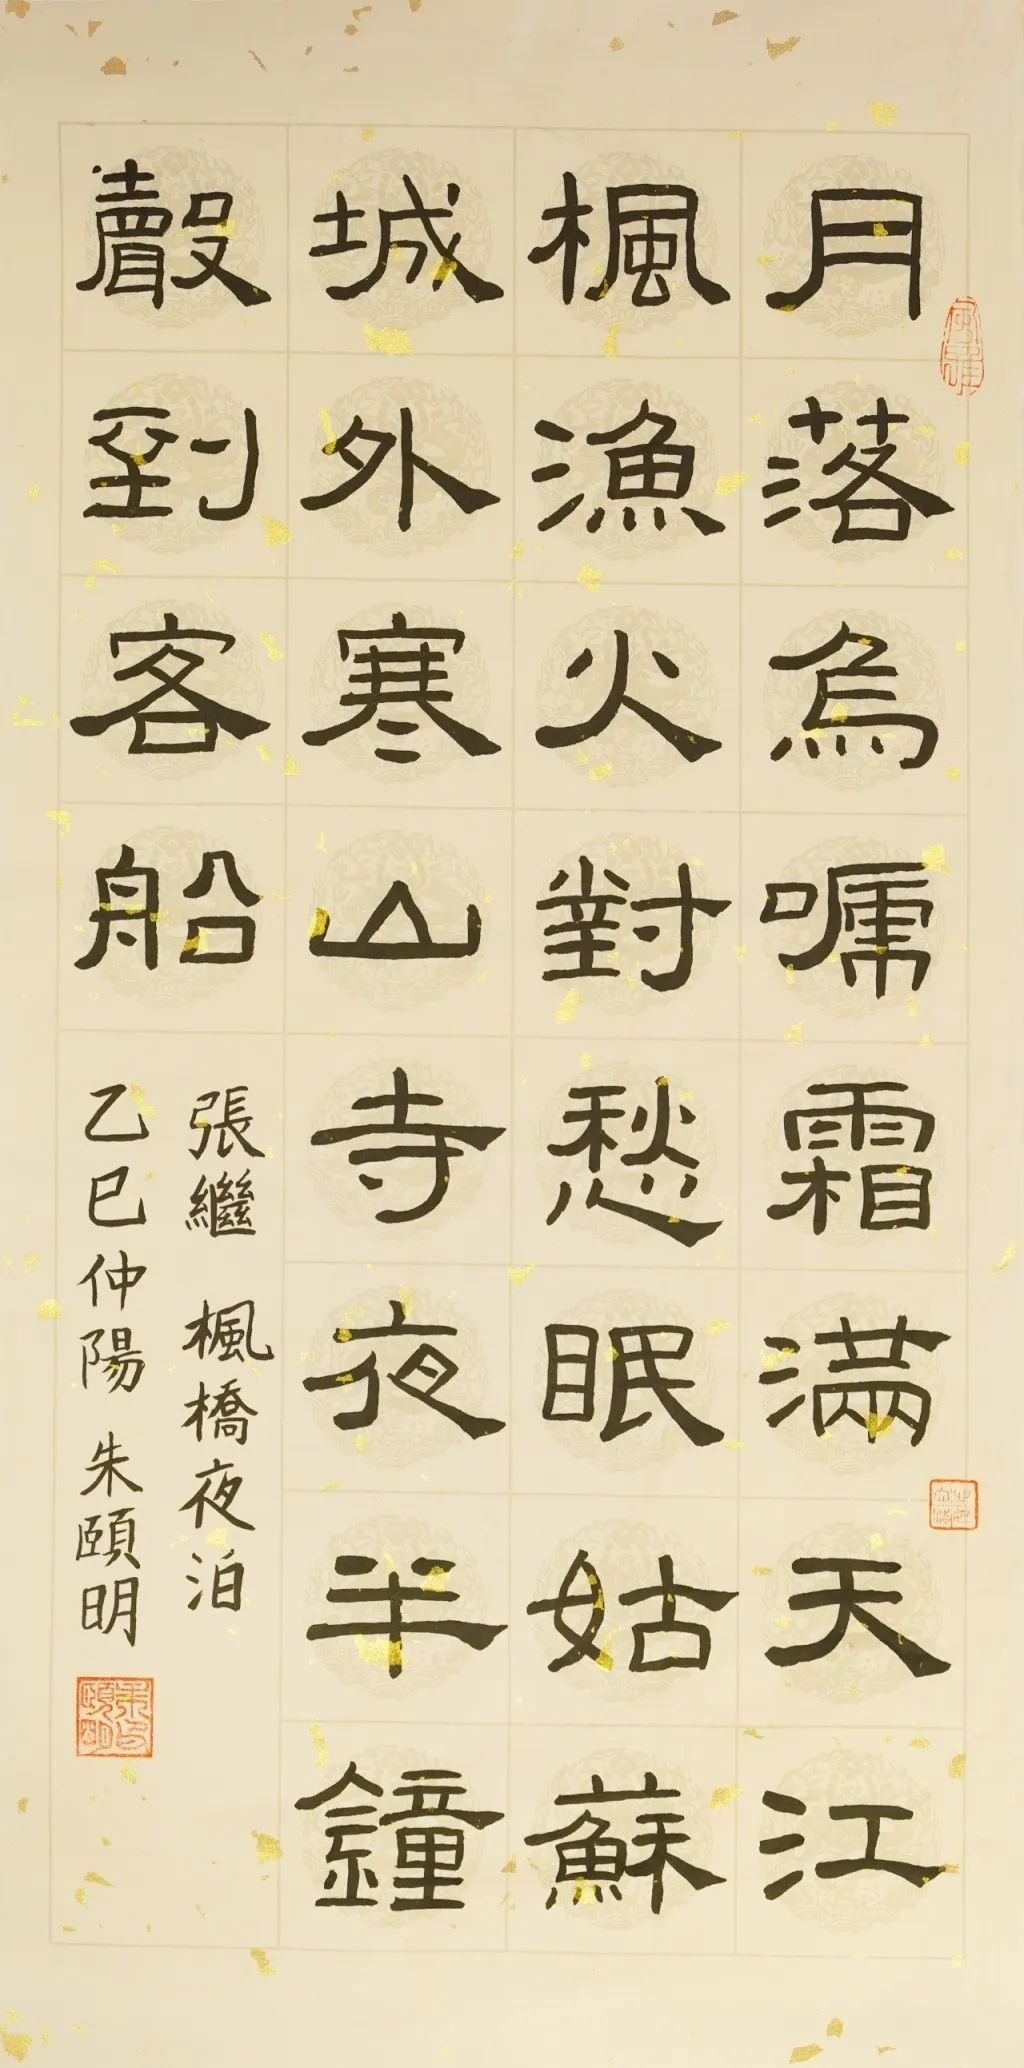 月落烏嗁霜滿天江
楓漁火對愁眠姑蘇
城外寒山寺夜半鐘
聲到客船
張繼 楓橋夜泊
乙巳仲陽 朱頤明